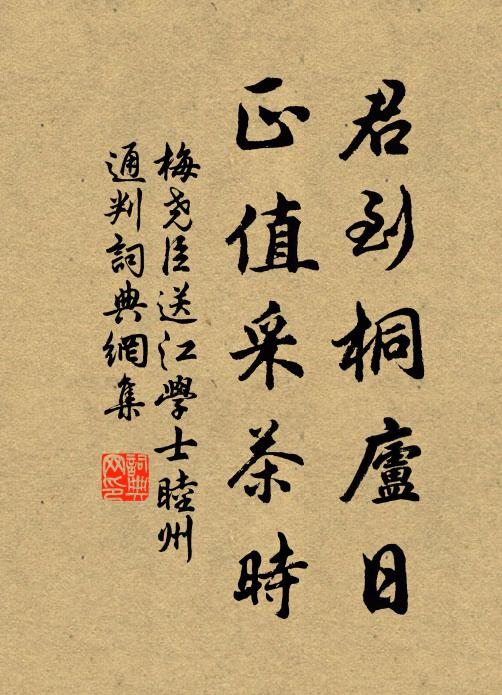 君到桐廬日
正值采茶時
梅堯臣送江學士睦州
通判詞典網集
詞典
网印